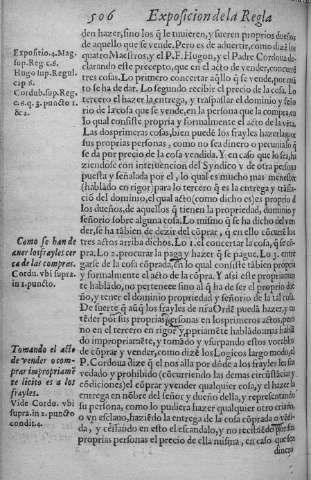 506 Exposicion de la Regla
den hazer, sino los q̃ le tuuieren, y fueren proprios dueños
de aquello que se vende. Pero es de aduertir, como dizẽ los
quatro Maestros, y el P. F. Hugon, y el Padre Cordoua de-
clarando este precepto, que en el acto de vender, concurrẽ
tres cosas. Lo primero concertar aq̃llo q̃ se vende, por quã
to se ha de dar. Lo segundo recibir el precio de la cosa. Lo
tercero el hazer la entrega, y traspassar el dominio y seño
rio de la cosa que se vende, en la persona que la compra, en
lo qual consiste propria y formalmente el acto de la vẽta.
Las dos primeras cosas, bien puedẽ los frayles hazerlas por
sus proprias personas, como no sea dinero o pecunia lo q̃
se da por precio de la cosa vendida. Y en caso que lo sea, ha
ziendose con interuencion del Syndico v de otra persona
puesta y señalada por el, lo qual es mucho mas menester
(hablãdo en rigor) para lo tercero q̃ es la entrega y trasla-
ciõ del dominio, el qual acto (como dicho es) es proprio d̃
los dueños, de aquellos q̃ tienen la propriedad, dominio y
señorio sobre alguna cosa. Lo mismo q̃ se ha dicho del ven
der, se ha tãbien de dezir del cõprar, q̃ en ello cõcurrẽ los
tres actos arriba dichos. Lo 1. el concertar la cosa, q̃ se cõ-
pra. Lo 2. procurar la paga y hazer q̃ se pague. Lo 3. entre
garse de la cosa cõprada, en lo qual consiste tãbien propria
y formalmente el acto de la cõpra. Y assi este propriamẽ
te hablado, no pertenece sino al q̃ ha de ser el proprio due
ño, y tener el dominio propriedad y señorio de la tal cosa.
De suerte q̃ aũq̃ los frayles de nr̃a Ordẽ puedã hazer,
por sus proprias personas en los primeros actos, pero
no en el tercero en rigor y propriamẽte hablãdo
do impropriamẽte, y tomãdo y vsurpando estos vocablos
de cõprar y vender, como dizẽ los Logicos largo modo, el
P. Cordoua dize q̃ el nos alla por dõde a los frayles les sea
vedado y prohibido (concurriendo las demas circũstãcias y
cõdiciones) el cõprar y vender qualquier cosa, y el hazer la
entrega en nõbre del señor y dueño della, y representando
su persona, como lo pudiera hazer qualquier otro criado,
o vn esclauo, haziẽdo la entrega de la cosa cõprada o vẽdi-
da, y cessando en esto el escandalo, y no recibiẽdo por sus
proprias personas el precio de ella ninguna, en caso que sea
dinero
Expositio. 4. Mag.
sup. Reg. c. 6.
Hugo sup. Regul.
cap 6.
Cordub. sup. Reg.
c. 6. q. 3. puncto 1.
& 2.
Como se han de
auer los frayles cer
ca de las compras.
Cordu. vbi supra.
in 1. puncto.
Tomando el acto
de vender o com-
prar impropriamẽ
te licito es a los
frayles.
Vide Cordu. vbi
supra. in 2. puncto
condit. 4.